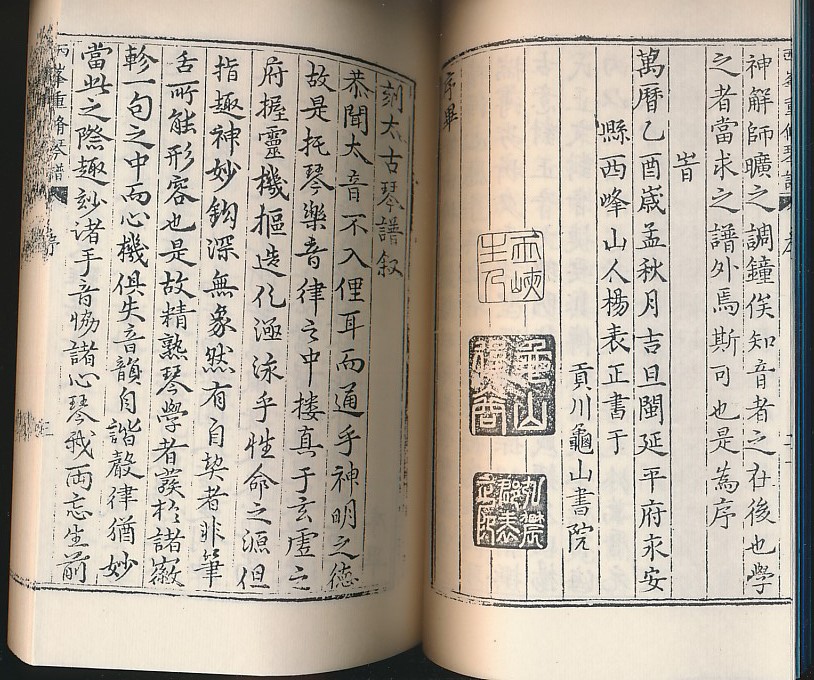 神解師曠之調鐘俟知音者之在後也學
之者當求之譜外焉斯可也是為序
旹
萬曆乙酉歲孟秋月吉旦閩延平府永安
縣西峰山人楊表正書于
貢川龜山書院
序畢
刻太古琴譜叙
恭聞太音不入俚耳而通乎神明之德
故是托琴樂音律之中棲真于玄虛之
府握靈機摳造化涵泳乎性命之源但
指趣神妙鈎深無象然有自契者非筆
舌所能形容也是故精熟琴學者蔟於諸徽
軫一句之中而心機俱失音韻自諧聲律猶妙
當此之際趣妙諸手音恊諸心琴我两忘生前
峯重脩琴譜 序